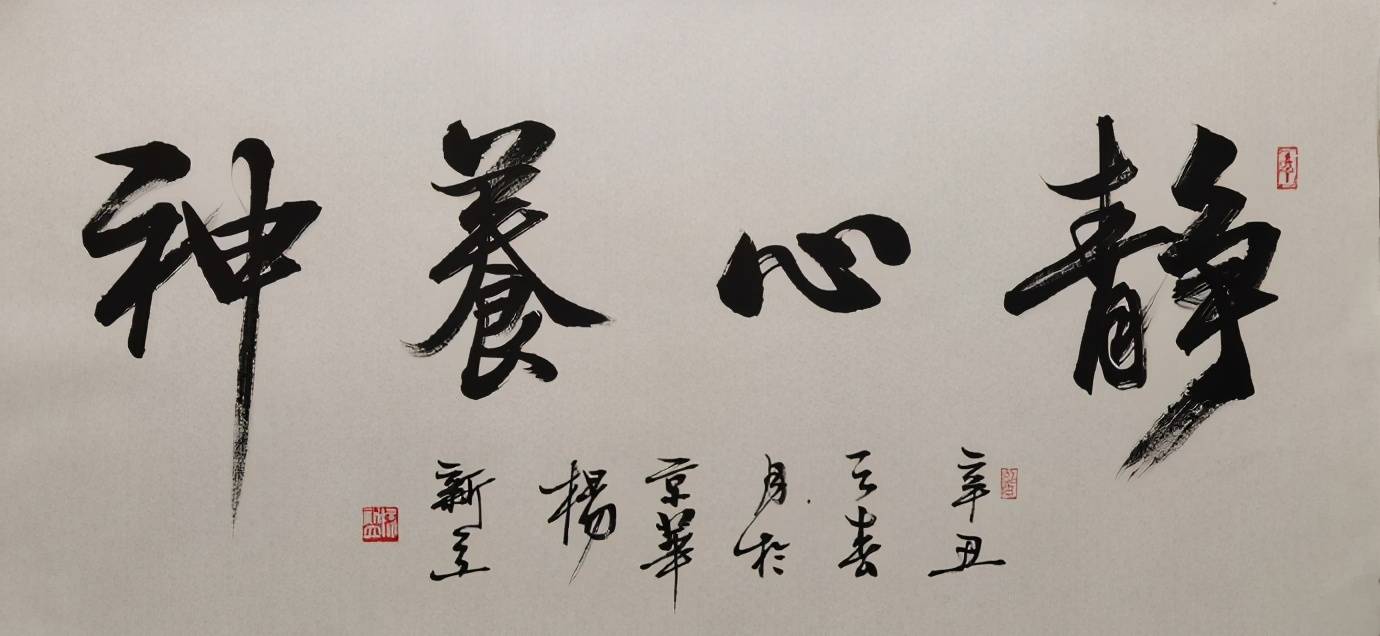 静心養神
辛丑
春
月於
京華
楊
新